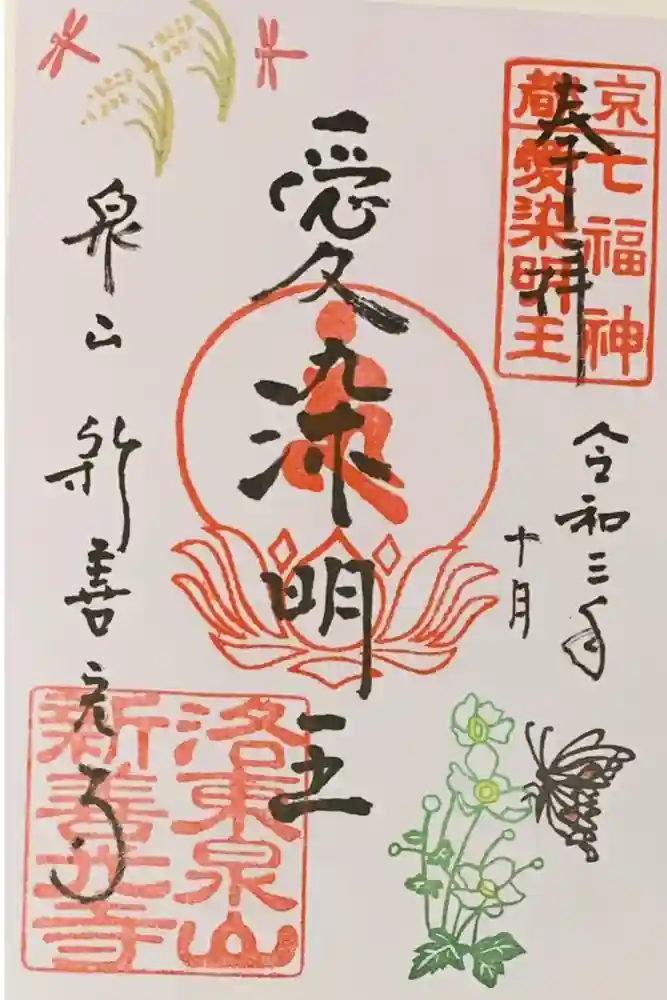 奉拝
京七福神
都愛染明王
令和三年
十月
愛染明王
泉山 新善光寺
洛東泉山
新善光寺